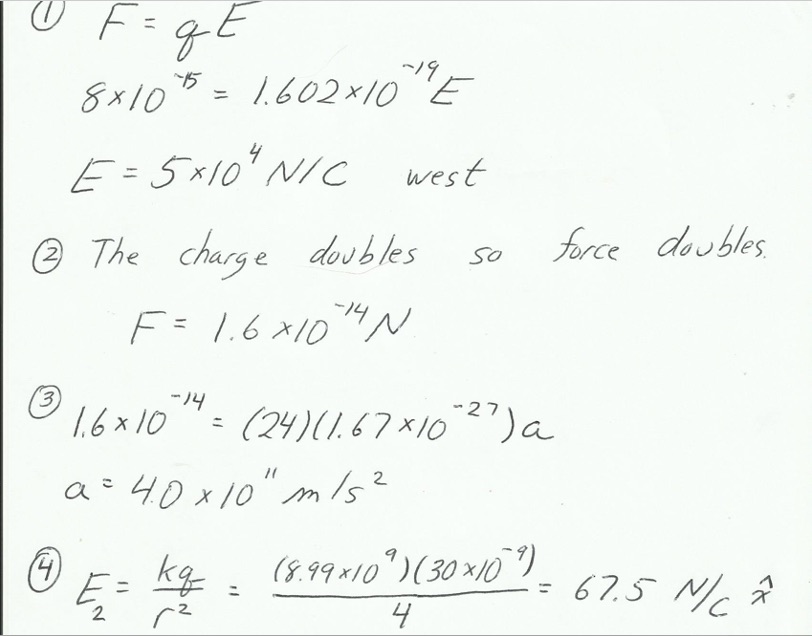 ① F = qE
8×10⁻¹⁵ = 1.602×10⁻¹⁹ E
E = 5×10⁴ N/C west
② The charge doubles so force doubles.
F = 1.6×10⁻¹⁴ N
③ 1.6×10⁻¹⁴ = (24)(1.67×10⁻²⁷)a
a = 4.0×10¹¹ m/s²
④ E₂ = kq/r² = (8.99×10⁹)(30×10⁻⁹)/4 = 67.5 N/C x̂